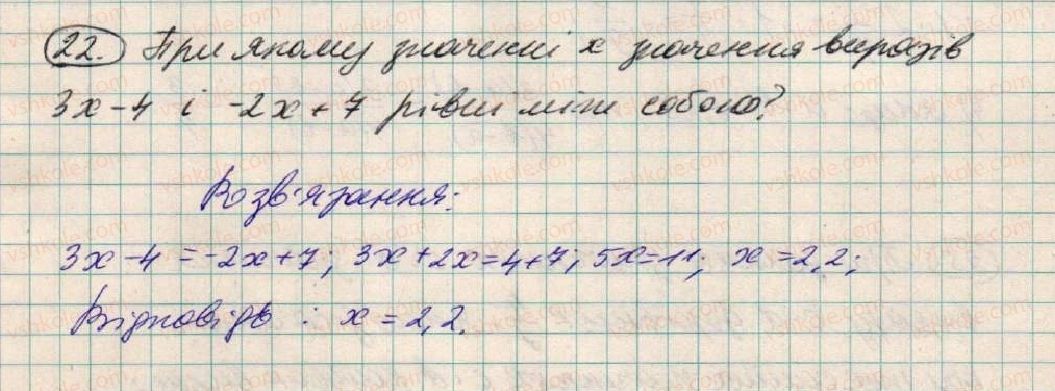 22. При якому значенні x значення виразів
3x-4 і -2x+7 рівні між собою?
Розв'язання:
3x-4=-2x+7; 3x+2x=4+7; 5x=11; x=2,2;
Відповідь: x=2,2.